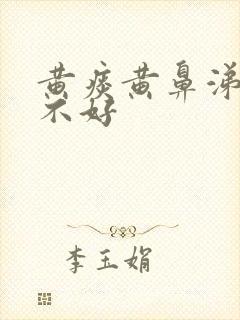 黄痰黄鼻涕
不好
李玉娟